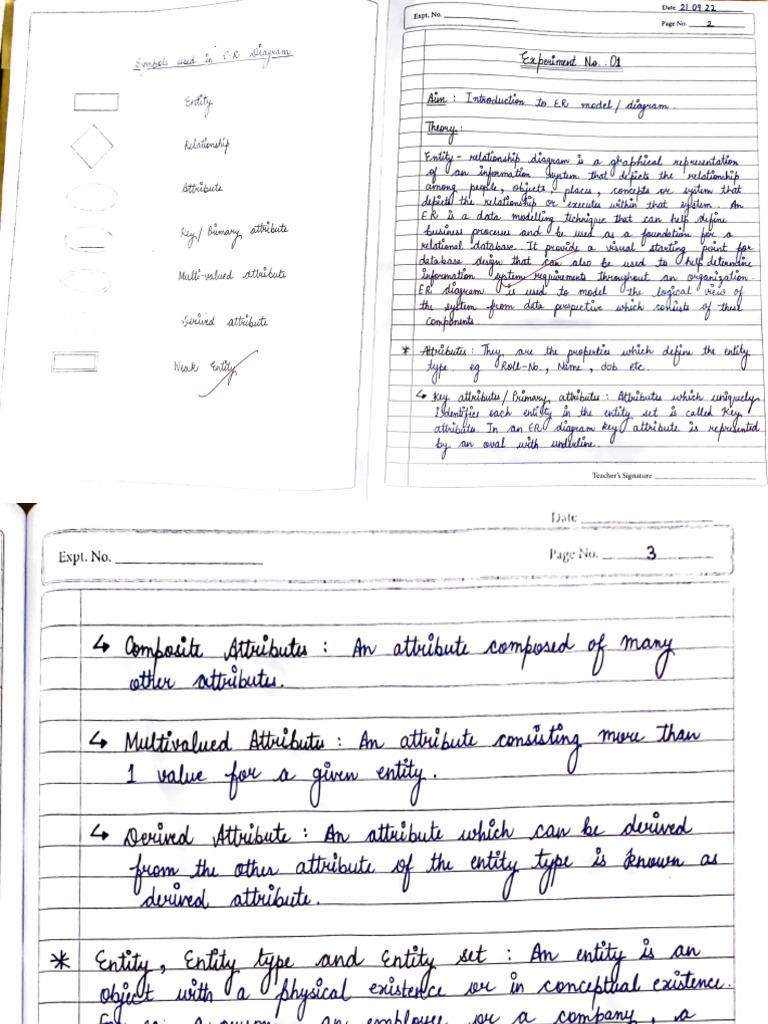 Symbols used in E-R Diagram
Entity
Relationship
Attribute
Key/Primary attribute
Multi-valued attribute
Derived attribute
Weak Entity
Date 21 09 22
Expt. No.
Page No. 2
Experiment No. 01
Aim : Introduction to ER model / diagram.
Theory :
Entity - relationship diagram is a graphical representation
of an information system that depicts the relationship
among people, objects, places, concepts or system that
depicts the relationship or executes within that system. An
ER is a data modelling technique that can help define
business processes and be used as a foundation for a
relational database. It provide a visual starting point for
database design that can also be used to help determine
information system requirements throughout an organization.
ER diagram is used to model the logical view of
the system from data perspective which consists of these
components.
* Attributes : They are the properties which define the entity
type. eg Roll-No., Name, dob etc.
↳ Key attributes/Primary attributes : Attributes which uniquely
identifies each entity in the entity set is called Key
attributes. In an ER diagram key attribute is represented
by an oval with underline.
Teacher's Signature
Date
Expt. No.
Page No. 3
↳ Composite Attributes : An attribute composed of many
other attributes.
↳ Multivalued Attributes : An attribute consisting more than
1 value for a given entity.
↳ Derived Attribute : An attribute which can be derived
from the other attribute of the entity type is known as
derived attribute.
* Entity, Entity type and Entity set : An entity is an
object with a physical existence or in conceptual existence.
a person, an employee or a company, a